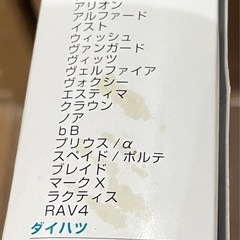 アリオン
アルファード
イスト
ウィッシュ
ヴァンガード
ヴィッツ
ヴェルファイア
ヴォクシー
エスティマ
クラウン
ノア
bB
プリウス/α
スペイド/ポルテ
ブレイド
マークX
ラクティス
RAV4
ダイハツ